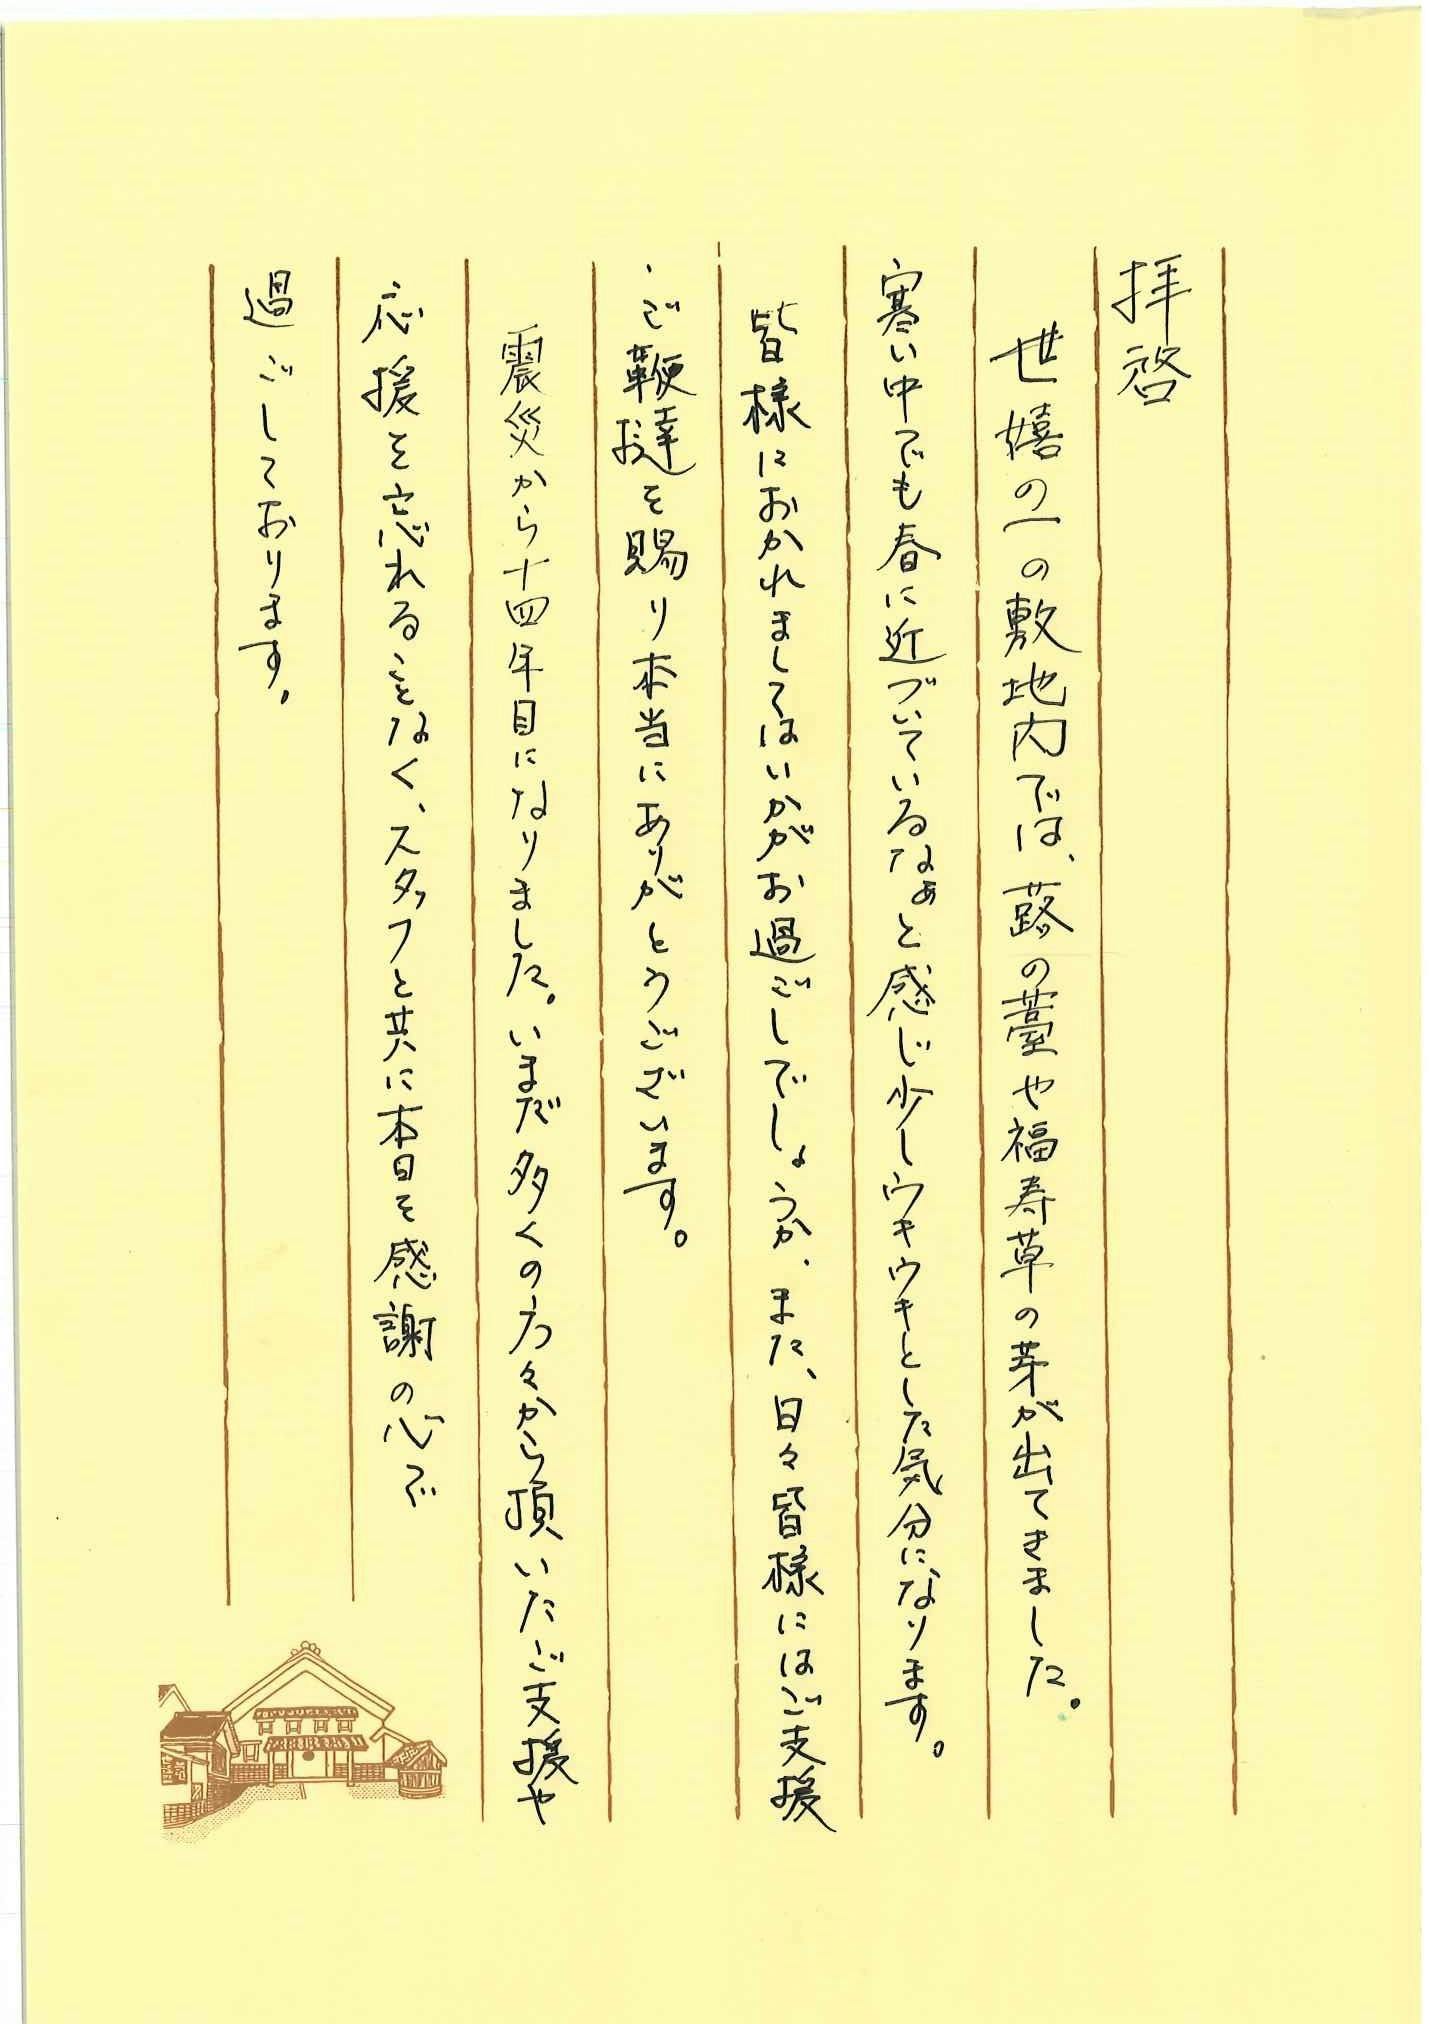 拝啓
世嬉の一の敷地内では、蕗の薹や福寿草の芽が出てきました。
寒い中でも春に近づいているなぁと感じ少しウキウキとした気分になります。
皆様におかれましてはいかがお過ごしでしょうか、また、日々皆様にはご支援
、ご鞭撻を賜り本当にありがとうございます。
震災から十四年目になりました。いまだ多くの方々から頂いたご支援や
応援を忘れることなく、スタッフと共に本日を感謝の心で
過ごしております。